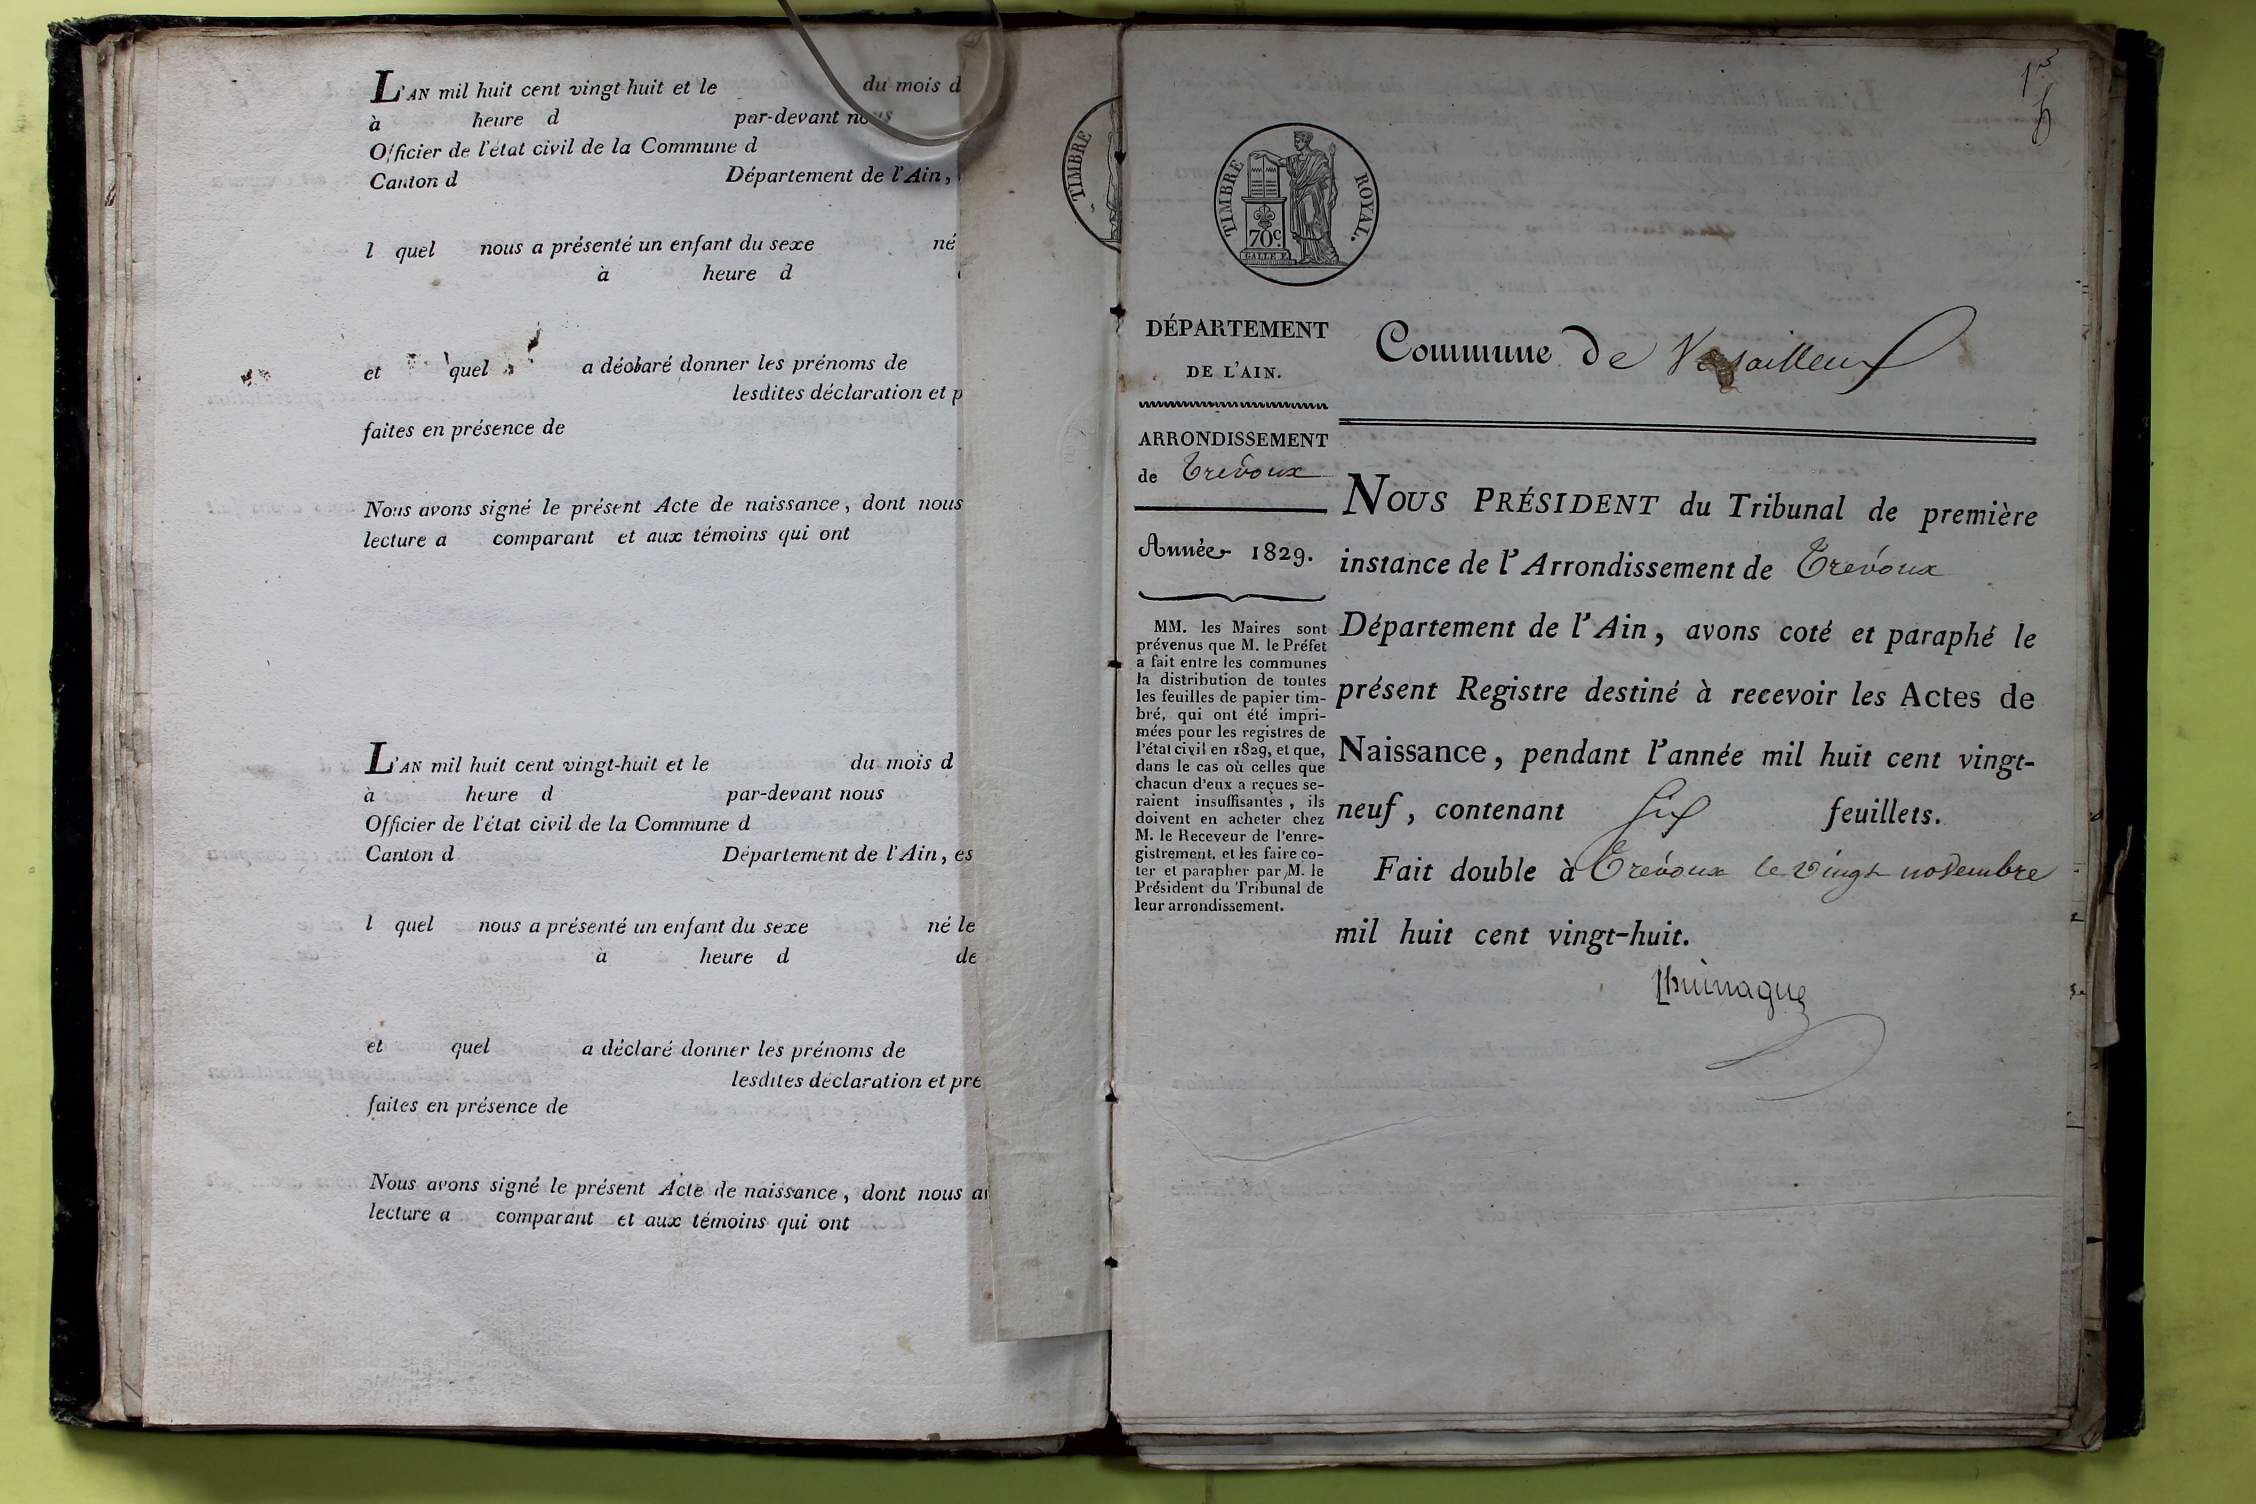 L'AN mil huit cent vingt-huit et le du mois d
à heure d par-devant nous
Officier de l'état civil de la Commune d
Canton d Département de l'Ain,
l quel nous a présenté un enfant du sexe né
à heure d
et quel a déclaré donner les prénoms de
lesdites déclaration et p
faites en présence de
Nous avons signé le présent Acte de naissance, dont nous
lecture a comparant et aux témoins qui ont
L'AN mil huit cent vingt-huit et le du mois d
à heure d par-devant nous
Officier de l'état civil de la Commune d
Canton d Département de l'Ain, es
l quel nous a présenté un enfant du sexe né le
à heure d de
et quel a déclaré donner les prénoms de
lesdites déclaration et pré
faites en présence de
Nous avons signé le présent Acte de naissance, dont nous av
lecture a comparant et aux témoins qui ont
TIMBRE
TIMBRE ROYAL.
70c
GALLE F.
DÉPARTEMENT
DE L'AIN.
ARRONDISSEMENT
de Trévoux
Année 1829.
MM. les Maires sont
prévenus que M. le Préfet
a fait entre les communes
la distribution de toutes
les feuilles de papier tim-
bré, qui ont été impri-
mées pour les registres de
l'état civil en 1829, et que,
dans le cas où celles que
chacun d'eux a reçues se-
raient insuffisantes, ils
doivent en acheter chez
M. le Receveur de l'enre-
gistrement, et les faire co-
ter et parapher par M. le
Président du Tribunal de
leur arrondissement.
Commune de Versailleux
NOUS PRÉSIDENT du Tribunal de première
instance de l'Arrondissement de Trévoux
Département de l'Ain, avons coté et paraphé le
présent Registre destiné à recevoir les Actes de
Naissance, pendant l'année mil huit cent vingt-
neuf, contenant six feuillets.
Fait double à Trévoux le vingt novembre
mil huit cent vingt-huit.